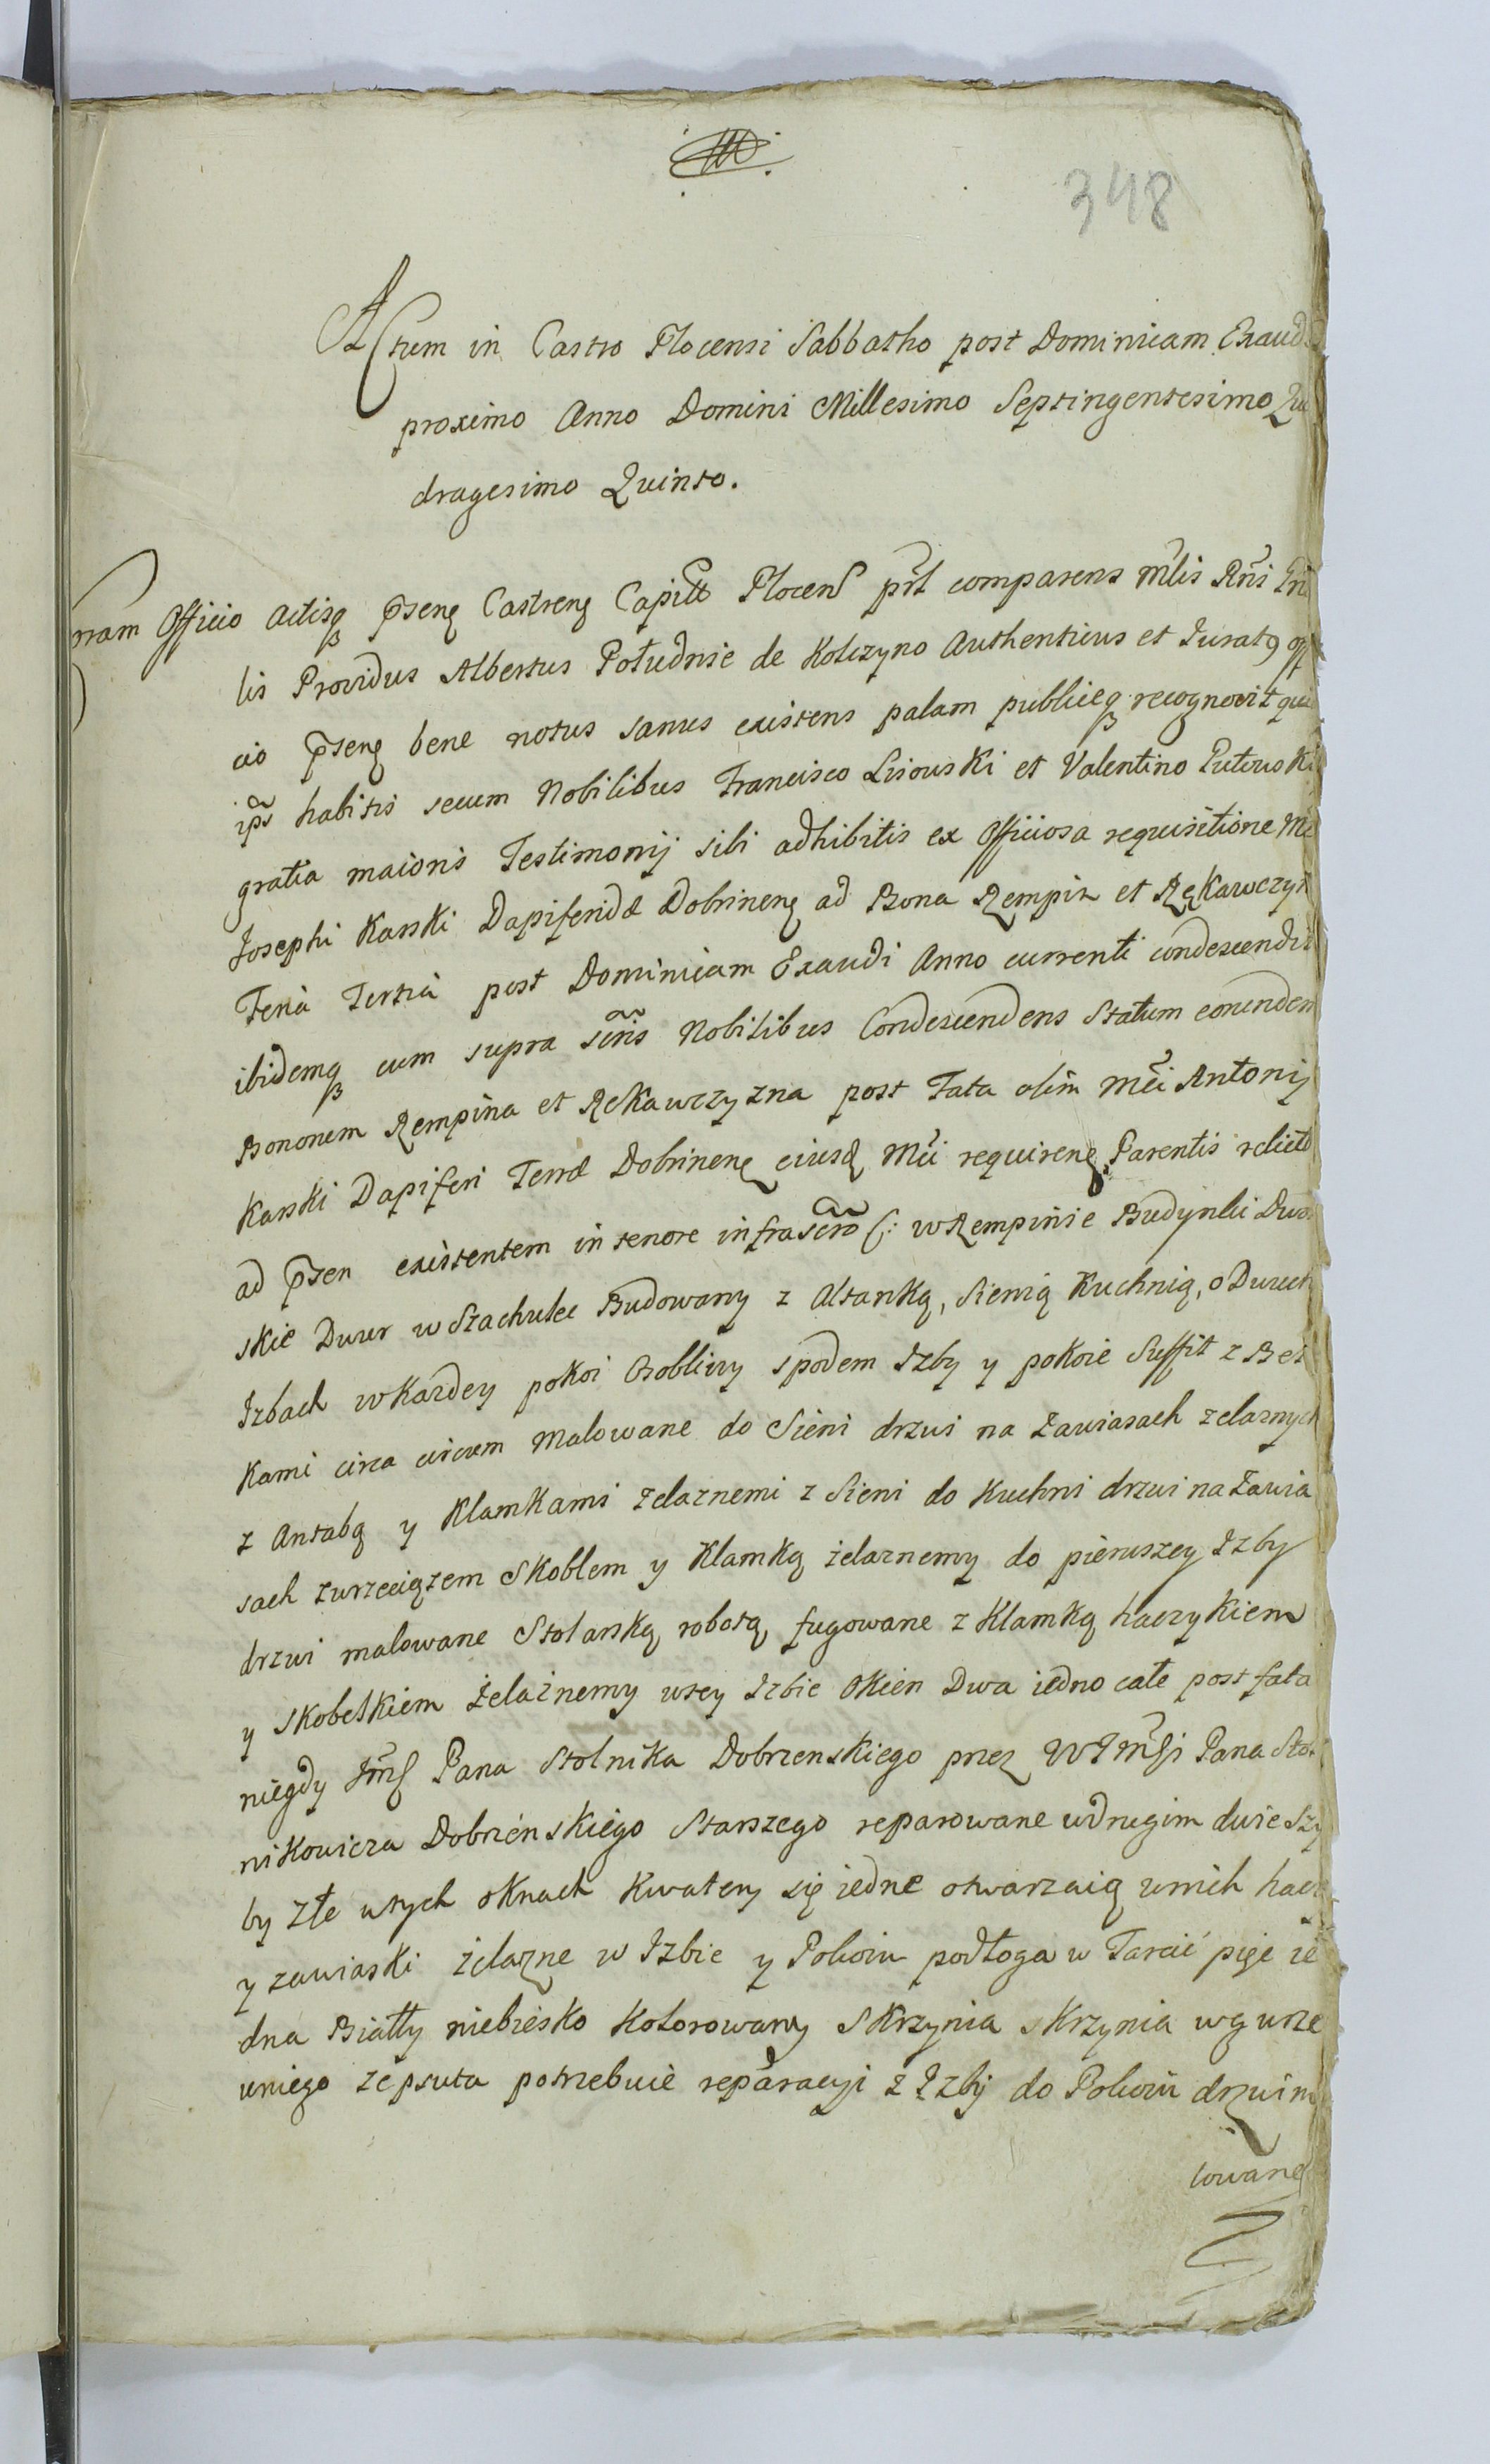 348
Actum in Castro Plocensi Sabbatho post Dominicam Exaudi
proximo Anno Domini Millesimo Septingentesimo Qua
dragesimo Quinto.
ram Officio Actisq p̃seng Castreng Capitt Plocen prt comparens Mlis Rñi
lis Providus Albertus Południe de Kolczyno Authenticus et Jurat9 offi
cio p̃seng bene notus sanus existens palam publiceq recognovit quia
ips̃ habitis secum Nobilibus Francisco Lisowski et Valentino Putowski
gratia maioris Testimonij sibi adhibitis ex Officiosa requisitione
Josephi Karski Dapiferidæ Dobrineng ad Bona Rempin et Rękawczyz
Feria Tertia post Dominicam Exaudi Anno currenti condescendit
ibidemq cum supra scris̃ Nobilibus Condescendens Statum eorundem
Bononem Rempina et Rekawczyzna post Fata olim Mci Antonij
Karski Dapiferi Terræ Dobrineng eiusd Mci requireng Parentis relict
ad p̃sen existentem in tenore infrascro (: w Rempinie Budynki Dwor
skie Dwor w Stachulec Budowany z Altanką, Sienią Kuchnią, o Dwuch
Izbach w Kazdey pokoi Osobliwy spodem Izby y pokoie Suffit z Bel
kami circa circum Malowane do Sieni drzwi na Zawiasach zelaznych
z Antabą y Klamkami zelaznemi z Sieni do Kuchni drzwi na Zawia
sach zwrzeciązem Skoblem y Klamką żelaznemy do pierwszey Izby
drzwi malowane Stolarską robotą fugowane z Klamką haczykiem
y skobelkiem żelaznemy wtey Izbie Okien Dwa iedno całe post fata
niegdy Jmś Pana Stolnika Dobrzenskiego przez WJmśi Pana Stol
nikowicza Dobrzenskiego Starszego reparowane wdrugim dwie Szy
by złe wtych oknach Kwatery się iedne otwarzaią wnich hacz
y zawiaski żelazne w Izbie y Pokoiu podłoga w Tarcic pięc ie
dna Biały niebiesko Kolorowany Skrzynia skrzynia wgurze
uniego zepsuta potrzebuie reparacyi z Izby do Pokoiu drzwi m
lowane